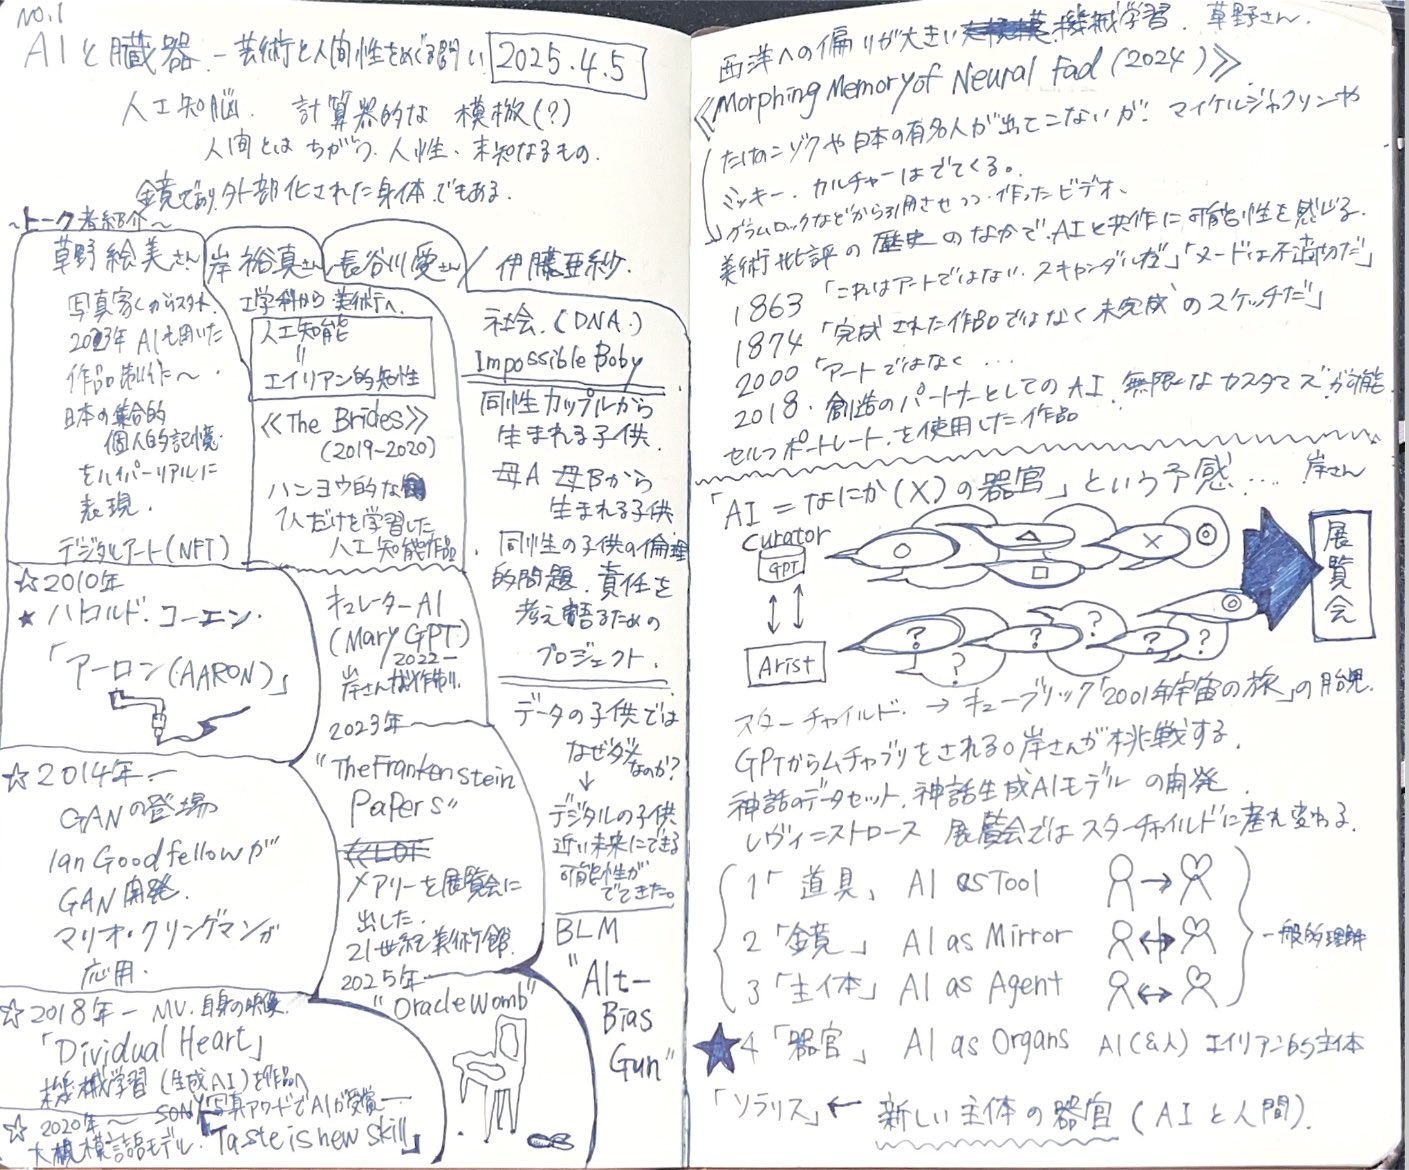 NO.1
AIと臓器 - 芸術と人間性をめぐる問い
2025.4.5
人工知脳. 計算器的な 模倣(?)
人間とは ちがう. 人性、未知なるもの.
鏡であり、外部化された身体でもある.
〜トーク者紹介〜
草野絵美さん
写真家からスタート.
2023年 AIを用いた
作品制作へ.
日本の集合的
個人的記憶
をハイパーリアルに
表現.
デジタルアート(NFT)
岸裕真さん
工学科から美術へ.
人工知能
=
エイリアン的知性
≪The Brides≫
(2019-2020)
ハンヨウ的な
1人だけを学習した
人工知能作品.
長谷川愛さん/伊藤亜紗.
社会.(DNA.)
Impossible Boby
同性カップルから
生まれる子供.
母A 母Bから
生まれる子供
同性の子供の倫理
的問題. 責任を
考え語るための
プロジェクト.
データの子供では
なぜダメなのか?
↓
デジタルの子供
近い未来にできる
可能性が
でてきた。
BLM
"Alt-
Bias
Gun"
☆2010年
★ハロルド.コーエン.
「アーロン(AARON)」
☆2014年ー
GANの登場
Ian Goodfellowが
GAN開発.
マリオ・クリンゲマンが
応用.
☆2018年ー MV.自身の映像.
「Dividual Heart」
機械学習(生成AI)を作品へ
SONY写真アワードでAIが受賞ー
☆2020年〜
大規模言語モデル.「Taste is new skill」
キュレーターAI
(Mary GPT)
2022ー
岸さんが作制.
2023年
"The Frankenstein
Papers"
メアリーを展覧会に
出した.
21世紀美術館.
2025年
"Oracle Womb"
西洋への偏りが大きい 機械学習. 草野さん.
≪Morphing Memory of Neural Fad (2024)≫
たけのこゾクや日本の有名人が出てこないが! マイケルジャクソンや
ミッキー. カルチャーはでてくる。
グラムロックなどから引用させつつ.作ったビデオ、
美術批評の歴史のなかで、AIと共作に可能性を感じる.
1863 「これはアートではない. スキャンダルだ」「ヌードは不適切だ」
1874 「完成された作品ではなく未完成のスケッチだ」
2000 「アートではなく...
2018. 創造のパートナーとしてのAI. 無限なカスタマズが可能
セルフポートレート.を使用した作品
「AI=なにか(X)の器官」という予感... 岸さん
Curator
GPT
Arist
○ △ □ × ◎
? ? ? ? ? ? ◎
展覧会
スターチャイルド. → キューブリック「2001年宇宙の旅」の胎児.
GPTからムチャブリをされる。岸さんが挑戦する.
神話のデータセット.神話生成AIモデルの開発.
レヴィ=ストロース 展覧会ではスターチャイルドに産れ変わる.
1「道具」 AI as Tool
2「鏡」 AI as Mirror
3「主体」 AI as Agent
一般的理解
★4「器官」 AI as Organs AI(&人) エイリアン的主体
「ソラリス」← 新しい主体の器官(AIと人間).